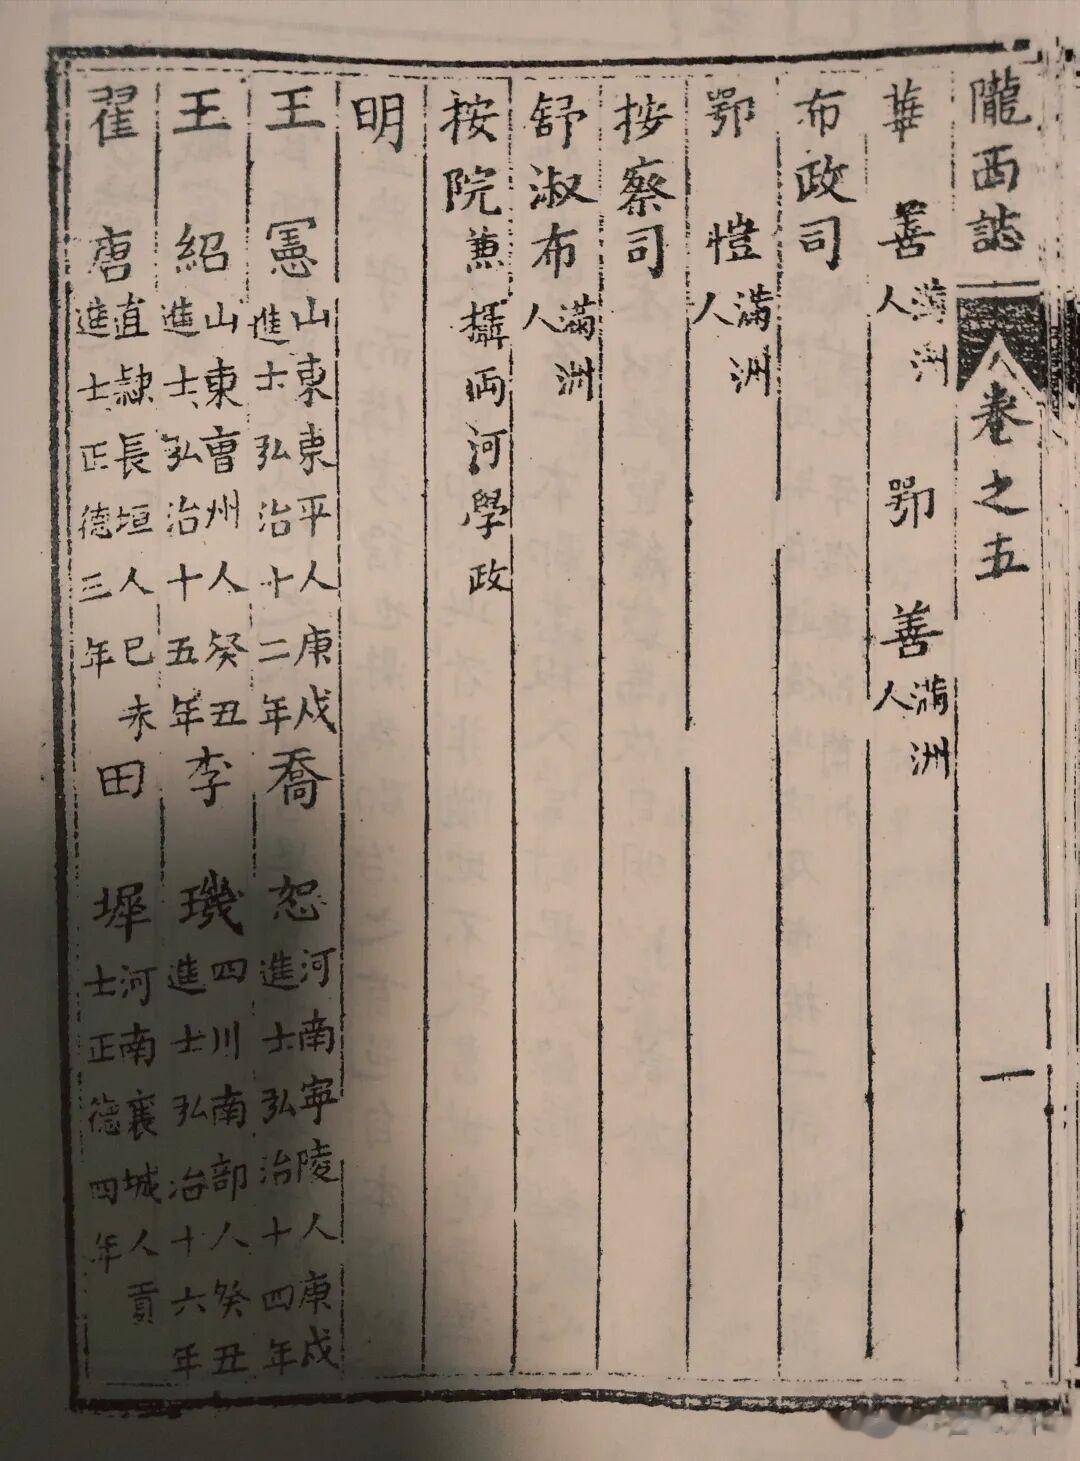 隴西誌 卷之五 一
華善 滿洲人 鄂善 滿洲人
布政司
鄂愷 滿洲人
按察司
舒淑布 滿洲人
按院兼攝両河學政
明
王憲 山東東平人庚戌進士弘治十二年 喬恕 河南寧陵人庚戌進士弘治十四年
王紹 山東曹州人癸丑進士弘治十五年 李璣 四川南部人癸丑進士弘治十六年
翟唐 直隷長垣人巳未進士正德三年 田墀 河南襄城人貢士正德四年